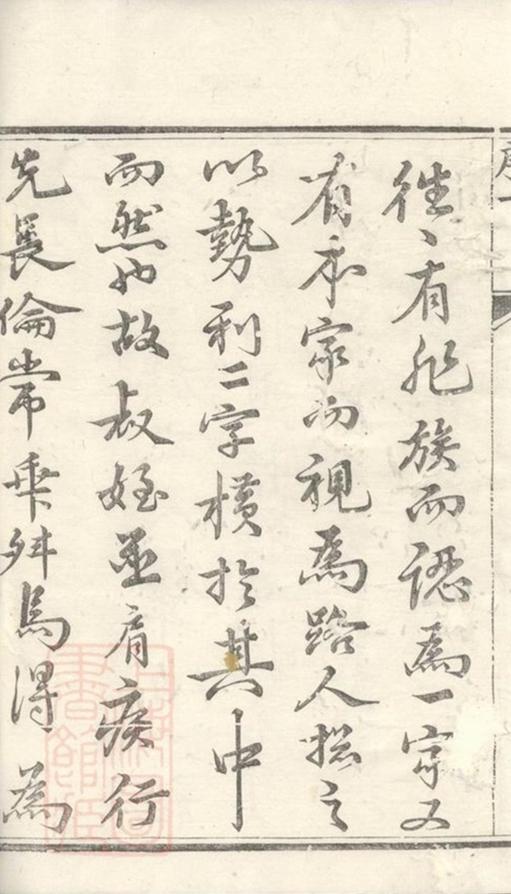 序一
往〻有非族而認為一宗又
有本家而視為路人揔之
以勢利二字橫於其中
而然也故叔姪並肩疾行
先長倫常乖舛焉得為